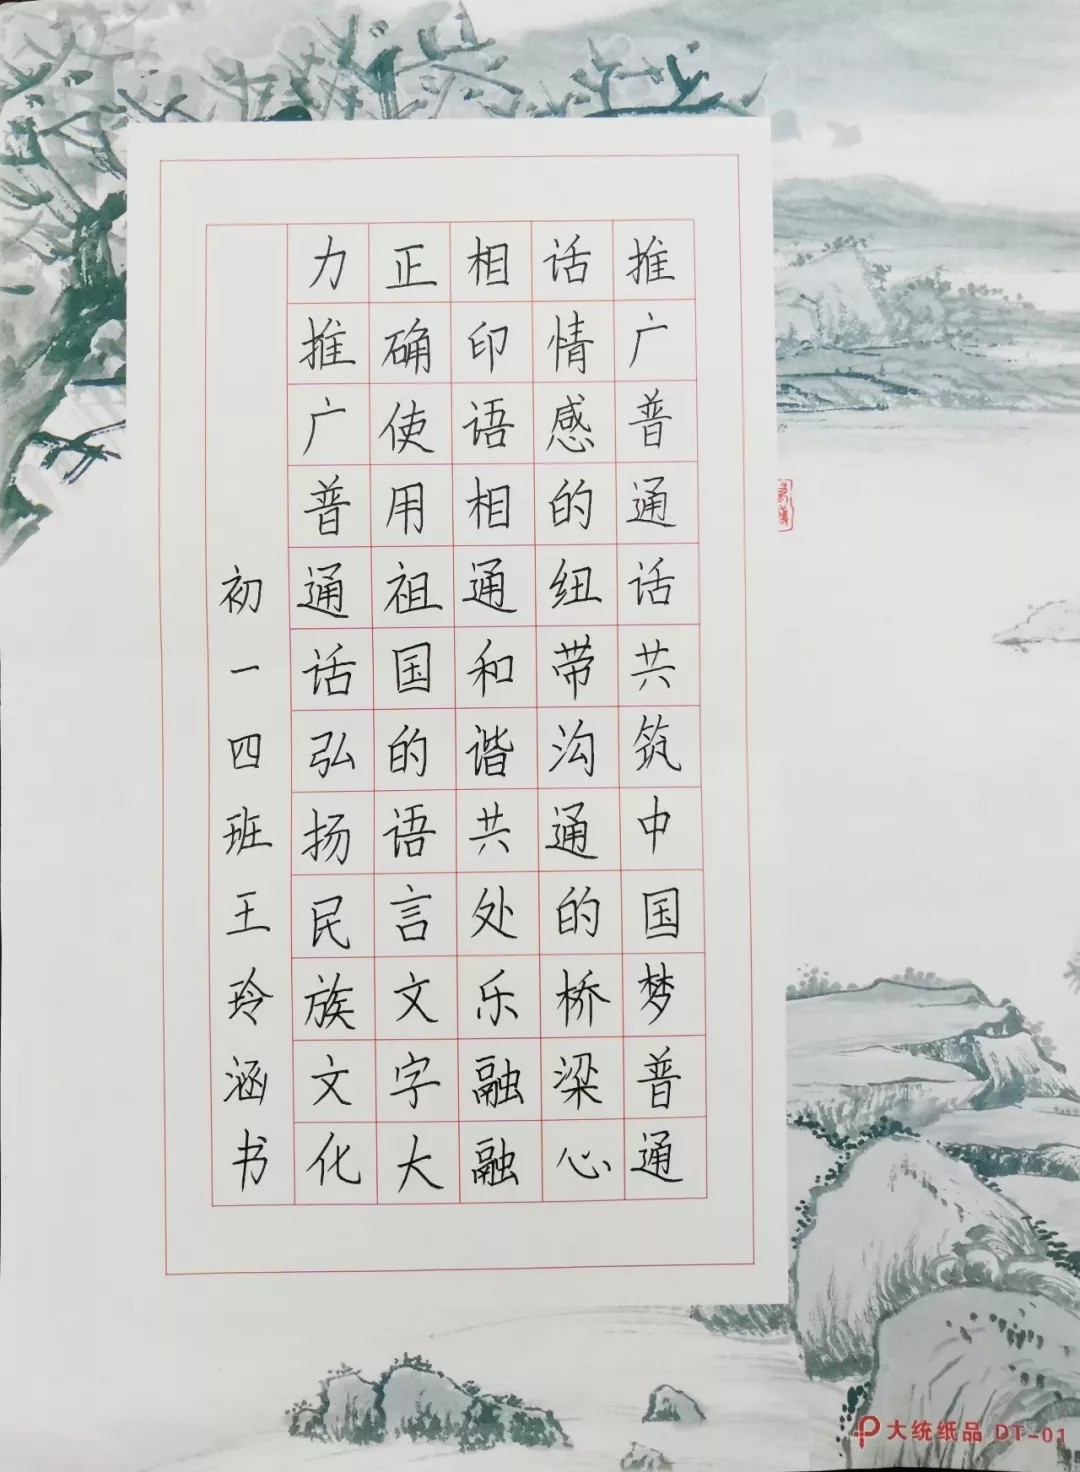 推广普通话共筑中国梦普通
话情感的纽带沟通的桥梁心
相印语相通和谐共处乐融融
正确使用祖国的语言文字大
力推广普通话弘扬民族文化
初一四班王玲涵书
大统纸品 DT-01